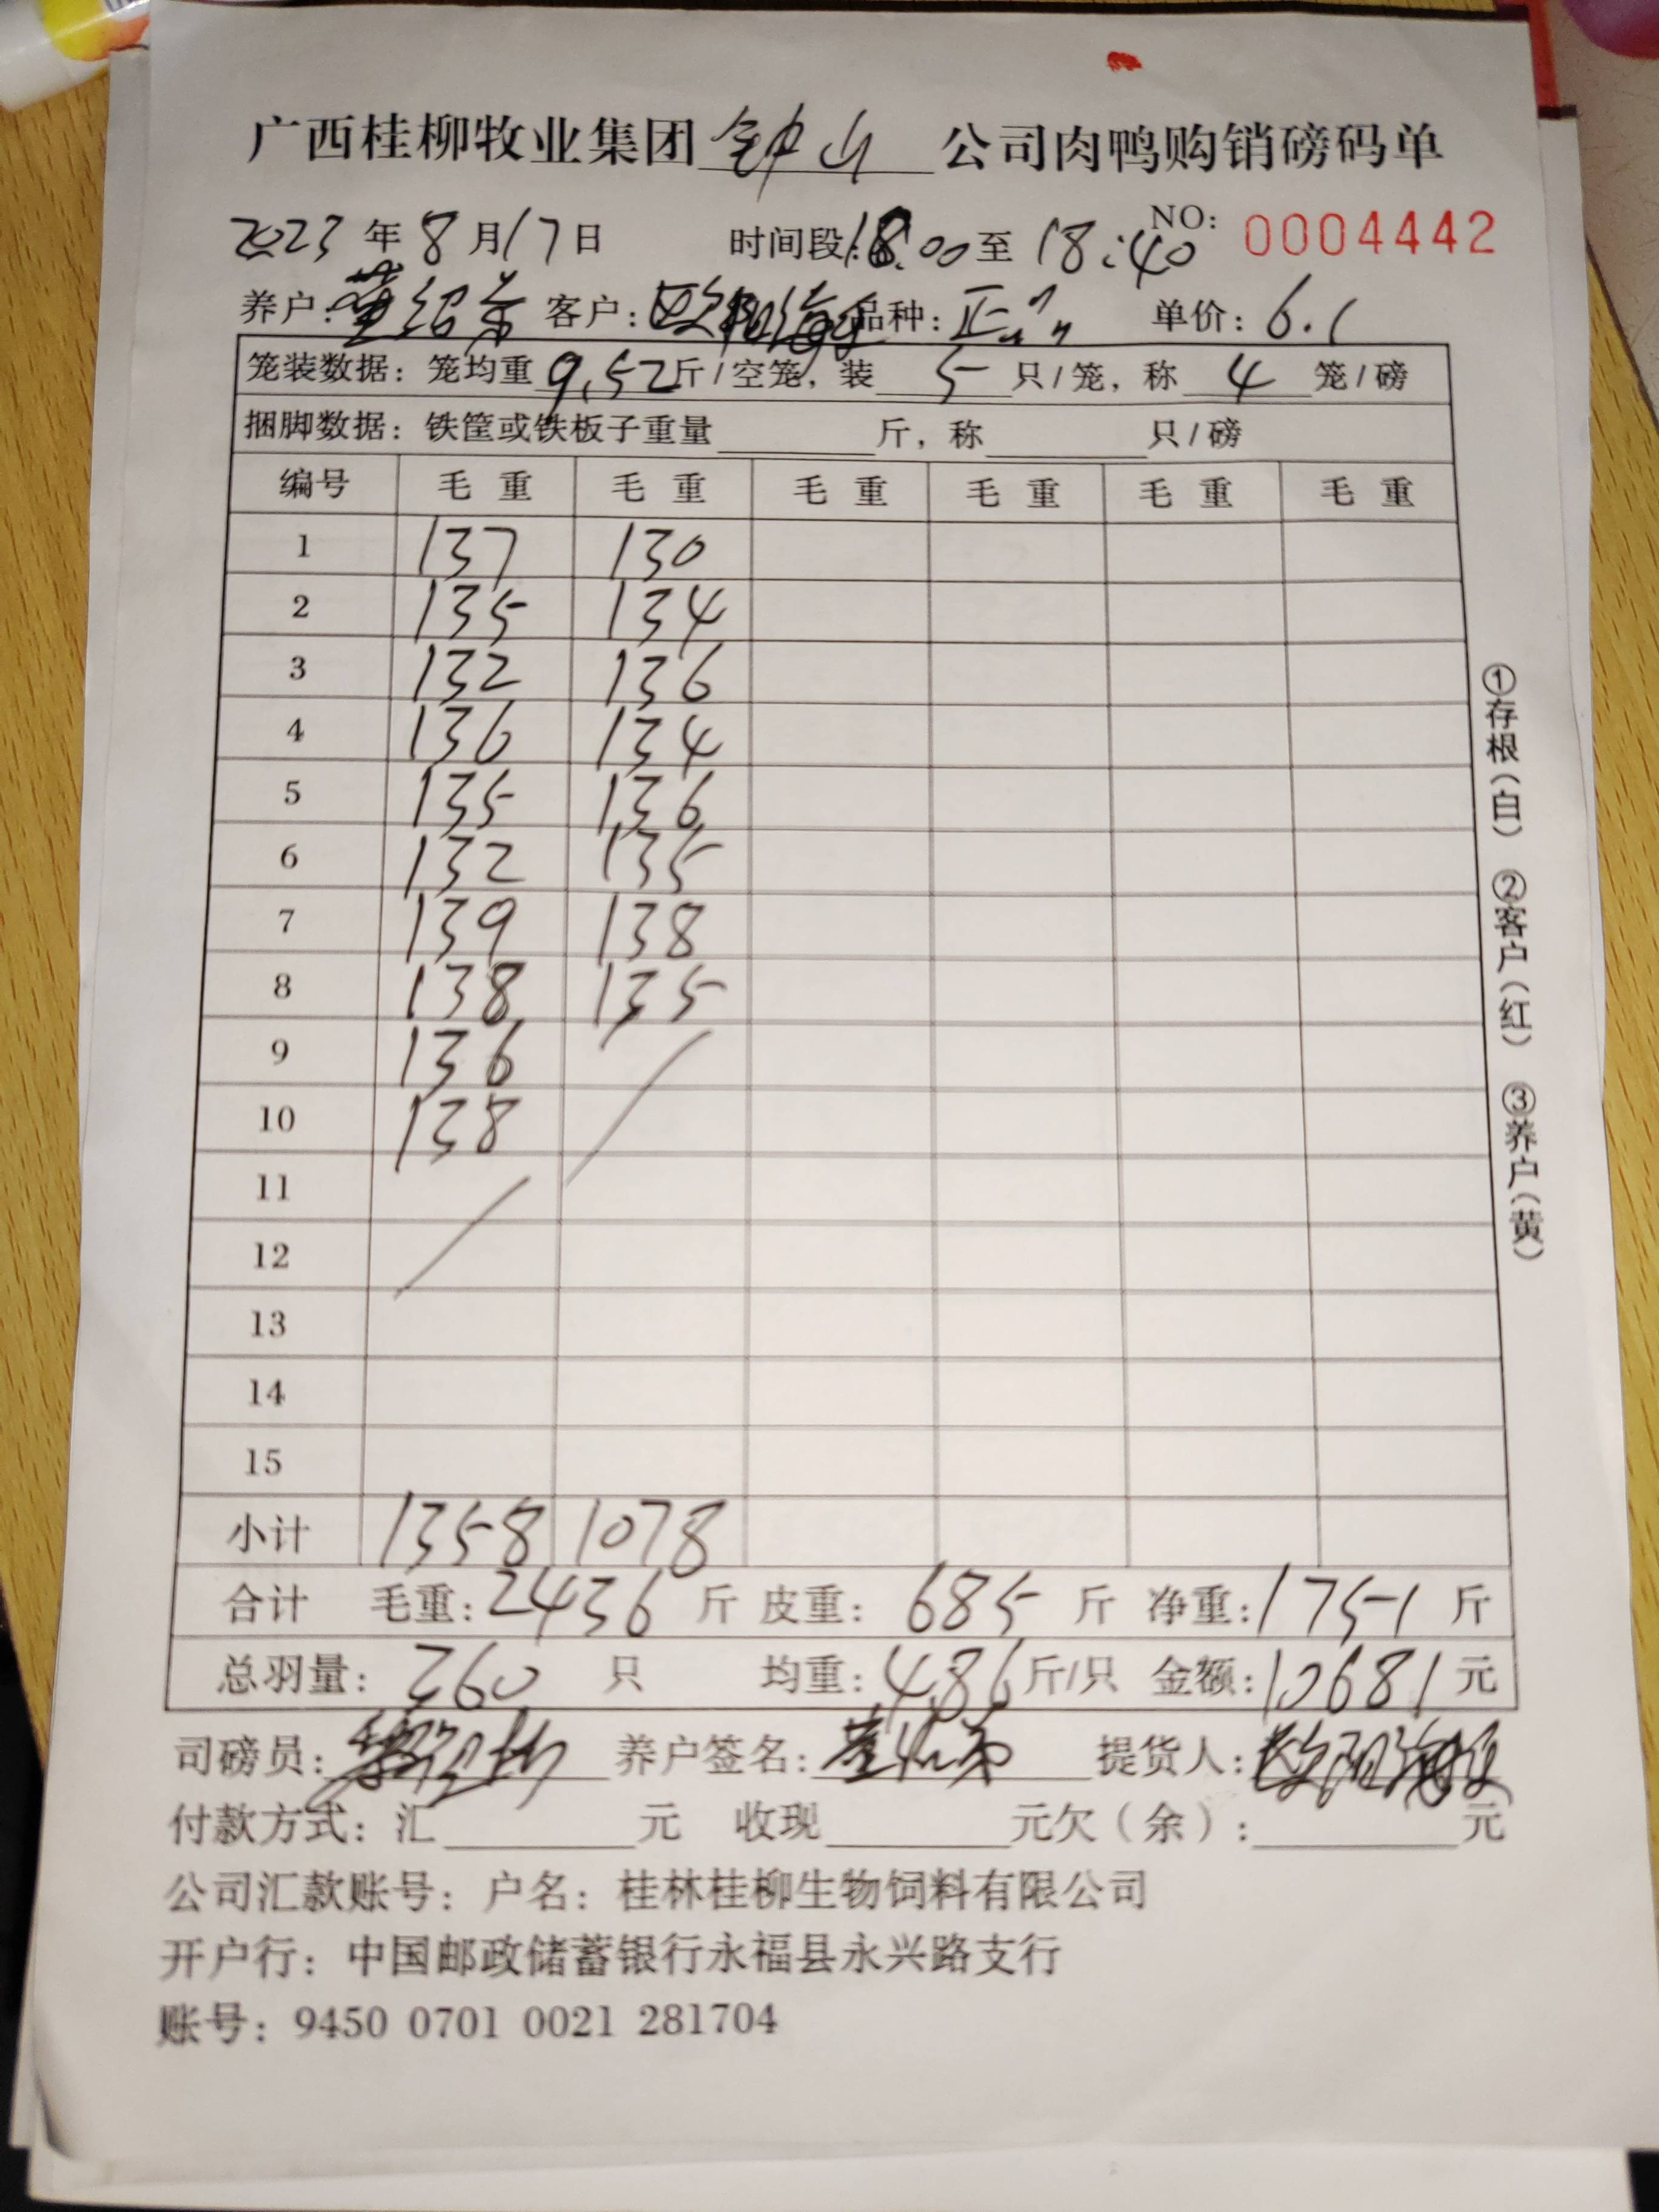 广西桂柳牧业集团 钟山 公司肉鸭购销磅码单
2023 年 8 月 17 日 时间段: 18:00 至 18:40 NO: 0004442
养户: 客户: 欧阳海 品种: 正 单价: 6.1
笼装数据: 笼均重 9.52 斤/空笼, 装 5 只/笼, 称 4 笼/磅
捆脚数据: 铁筐或铁板子重量 斤, 称 只/磅
编号 毛重 毛重 毛重 毛重 毛重 毛重
1 137 130
2 135 134
3 132 136
4 136 134
5 135 136
6 132 135
7 139 138
8 138 135
9 136
10 138
11
12
13
14
15
小计 1358 1078
合计 毛重: 2436 斤 皮重: 685 斤 净重: 1751 斤
总羽量: 260 只 均重: 4.86 斤/只 金额: 10681 元
司磅员: 养户签名: 提货人: 欧阳海
付款方式: 汇 元 收现 元欠(余): 元
公司汇款账号: 户名: 桂林桂柳生物饲料有限公司
开户行: 中国邮政储蓄银行永福县永兴路支行
账号: 9450 0701 0021 281704
①存根(白) ②客户(红) ③养户(黄)